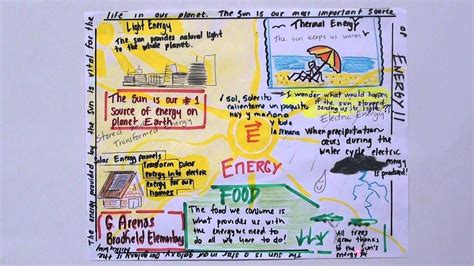 life in our planet. The Sun is our most important Source
of
ENERGY!!
Light Energy
The sun provides natural light
to the whole planet.
Thermal Energy
The sun keeps us warm
The Sun is our #1
Source of energy on
planet Earth.
Stored
Transformed Energy
¡ Sol, Solecito
calientame un poquito
hoy y mañana
y toda
la semana
I wonder what would happen
if the sun stopped
sending us its light?
Electric Energy
When precipitation
occurs during the
water cycle electric
energy
is produced!
Solar Energy panels
Transform Solar
energy into electric
energy for our
homes!
E
ENERGY
FOOD
The food we consume is
what provides us with
the energy we need to
do all we have to do!
G. Arenas
Bradfield Elementary
All trees
grow thanks
to the Sun's
energy
The energy provided by the Sun is vital for the
The Sun is a star in our galaxy